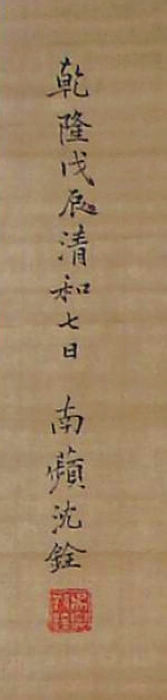 乾隆戊辰清和七日 南蘋沈銓